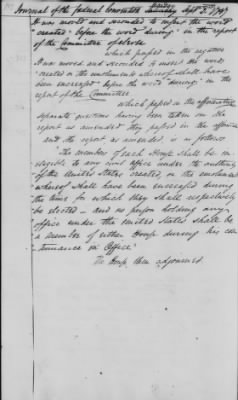 Journal of the federal Convention Monday Sept 3d 1787
It was moved and seconded to insert the word
"created" before the word "during" in the report
of the Committee
which passed in the negative
It was moved and seconded to insert the words
"created or the emoluments whereof shall have
been increased" before the word "during" in the
report of the Committee
which passed in the affirmative
separate questions having been taken on the
report as amended they passed in the affirmative
and the report as amended, is as follows
The members of each House shall be in-
eligible to any civil Office under the authority
of the United States created, or the emoluments
whereof shall have been increased during
the time for which they shall respectively
be elected — and no person holding any
office under the United States shall be
a member of either House during his con-
tinuance in Office
The House then adjourned